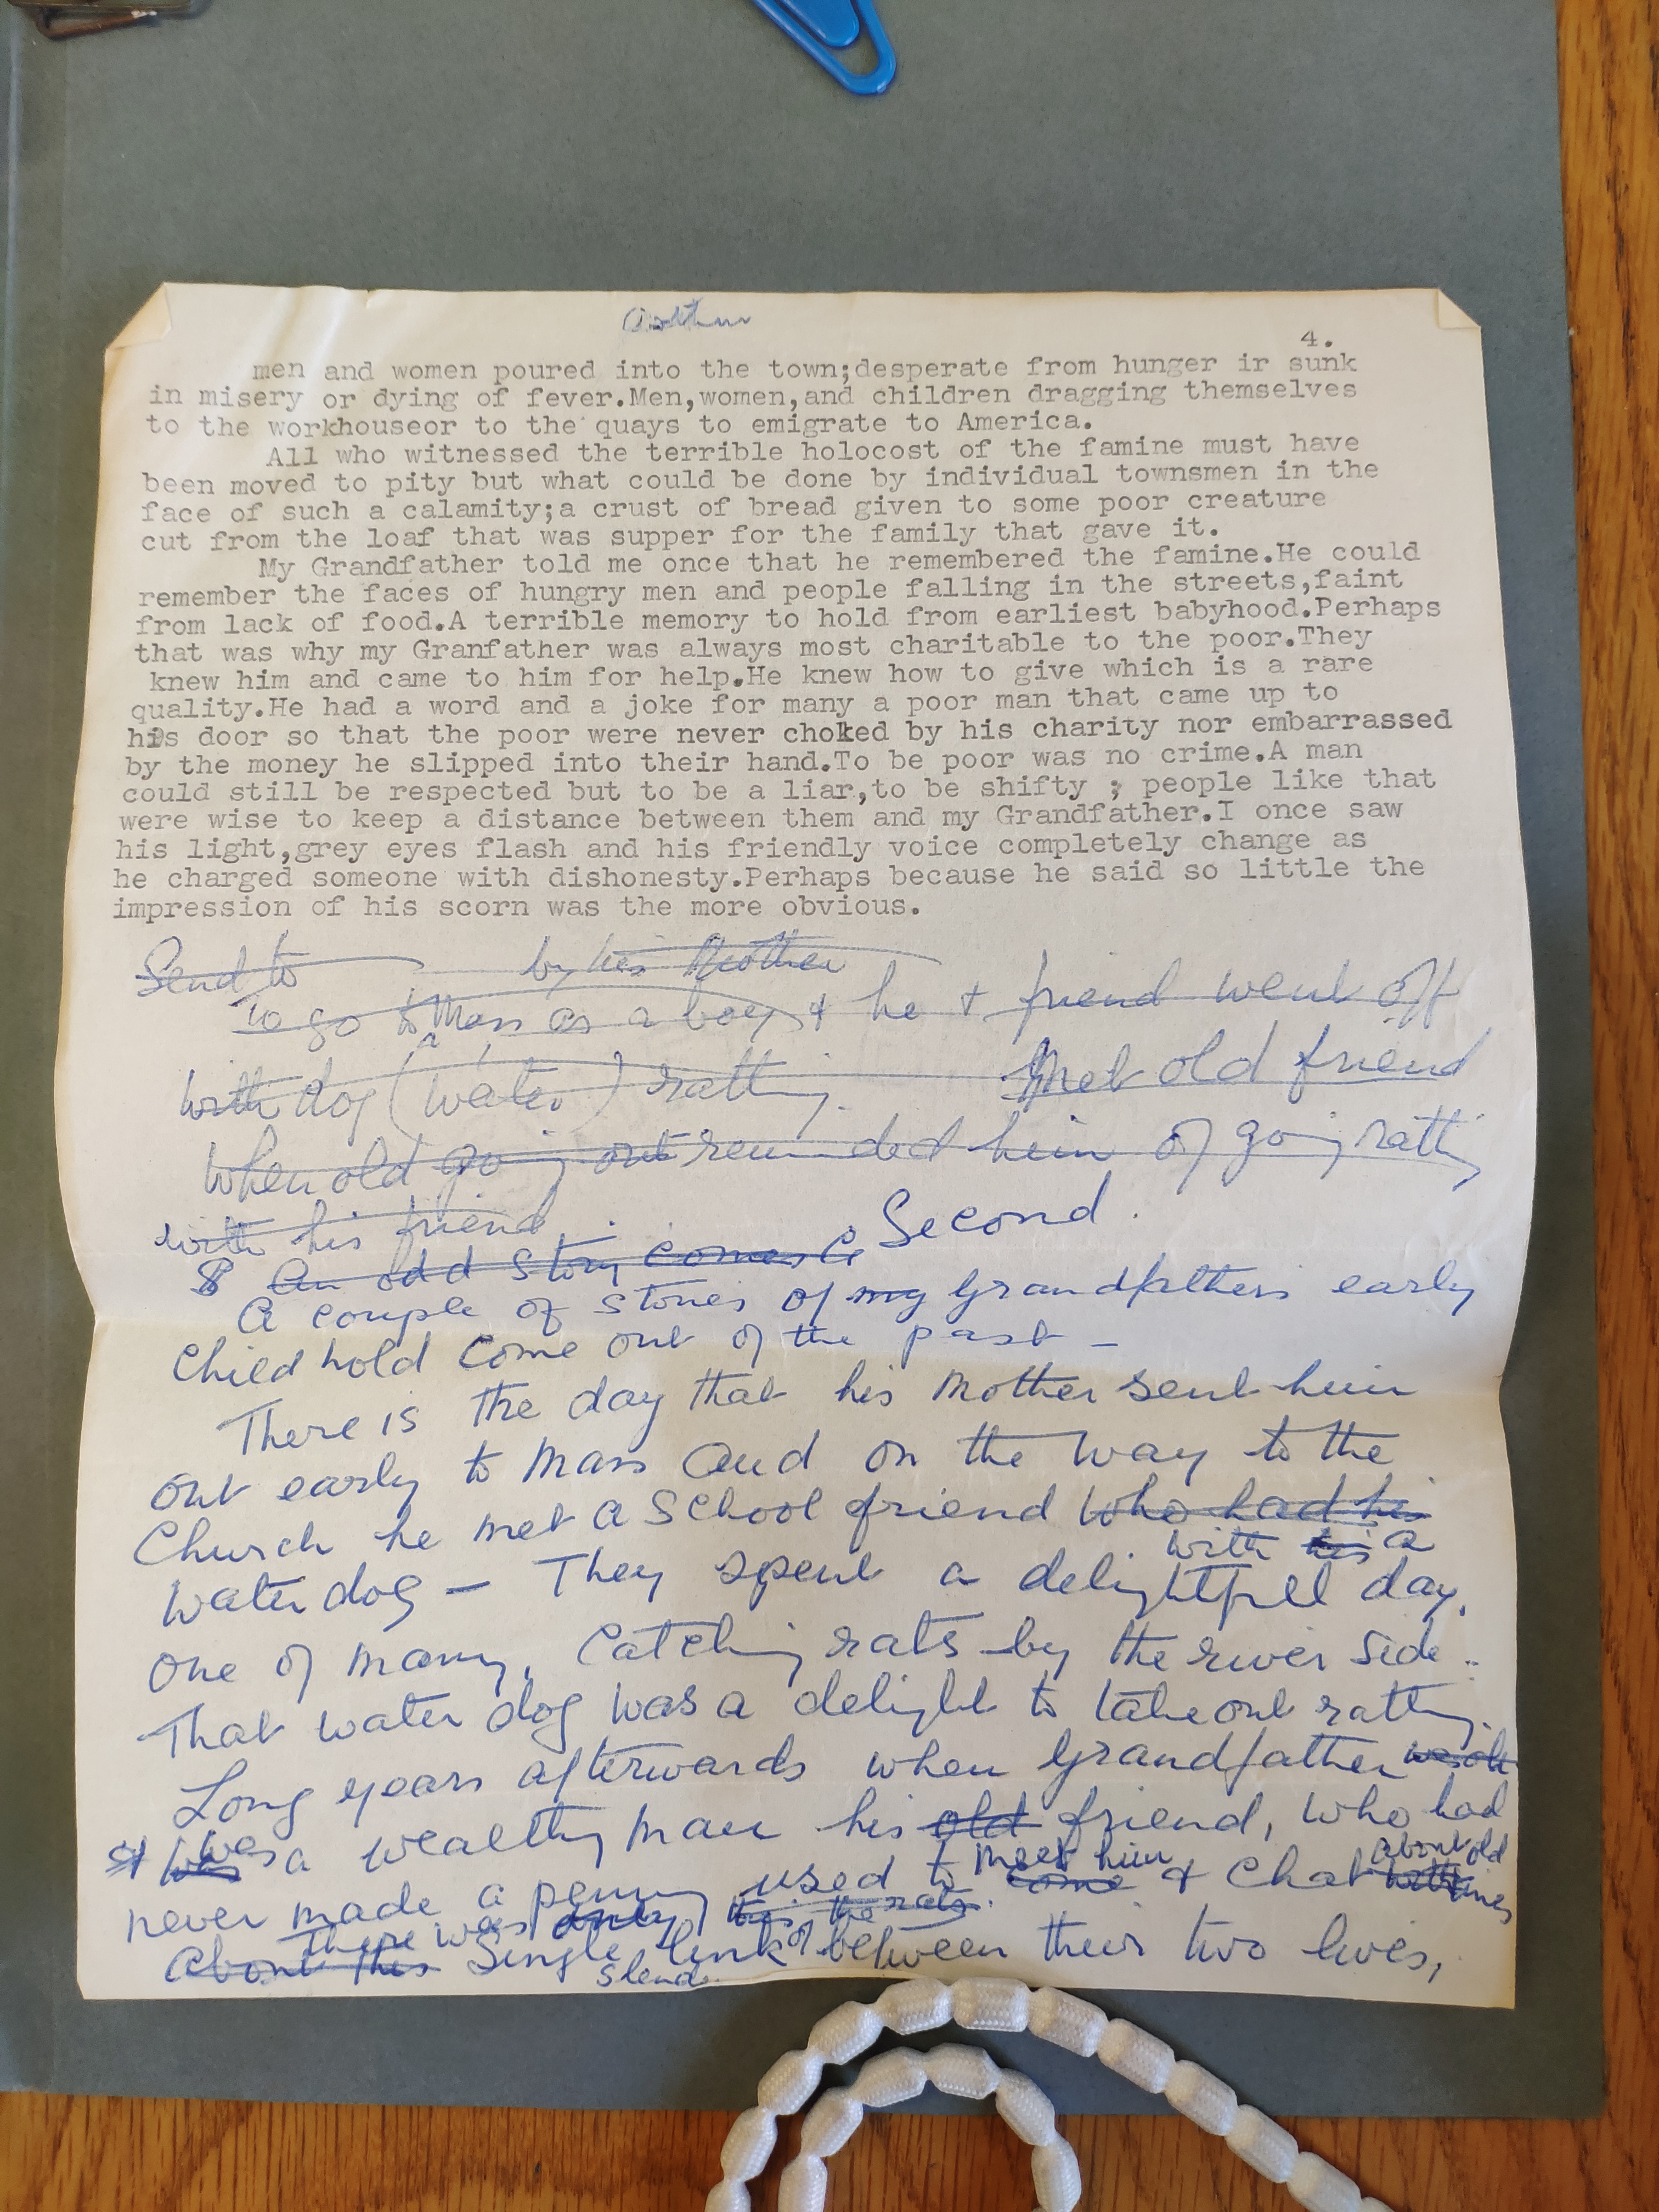 4.
men and women poured into the town;desperate from hunger ir sunk
in misery or dying of fever.Men,women,and children dragging themselves
to the workhouseor to the quays to emigrate to America.
All who witnessed the terrible holocost of the famine must have
been moved to pity but what could be done by individual townsmen in the
face of such a calamity;a crust of bread given to some poor creature
cut from the loaf that was supper for the family that gave it.
My Grandfather told me once that he remembered the famine.He could
remember the faces of hungry men and people falling in the streets,faint
from lack of food.A terrible memory to hold from earliest babyhood.Perhaps
that was why my Granfather was always most charitable to the poor.They
knew him and came to him for help.He knew how to give which is a rare
quality.He had a word and a joke for many a poor man that came up to
his door so that the poor were never choked by his charity nor embarrassed
by the money he slipped into their hand.To be poor was no crime.A man
could still be respected but to be a liar,to be shifty ; people like that
were wise to keep a distance between them and my Grandfather.I once saw
his light,grey eyes flash and his friendly voice completely change as
he charged someone with dishonesty.Perhaps because he said so little the
impression of his scorn was the more obvious.
Send to by his Mother
To go to Mass as a boy & he & friend went off
with a dog (water) ratting. Met old friend
when old going out reminded him of going ratting
with his friend
Second.
An odd story comes
A couple of stories of my Grandfathers early
Child hold come out of the past -
There is the day that his Mother sent him
out early to Mass and on the way to the
Church he met a School friend who had his
with his a
water dog - They spent a delightful day,
one of many, Catching rats by the river side.
That water dog was a delight to take out ratting.
Long years afterwards when Grandfather was old
was a wealthy man his old friend, who had
never made a penny used to come meet him & Chat about old times
There was only
about this Single link of between their two lives,